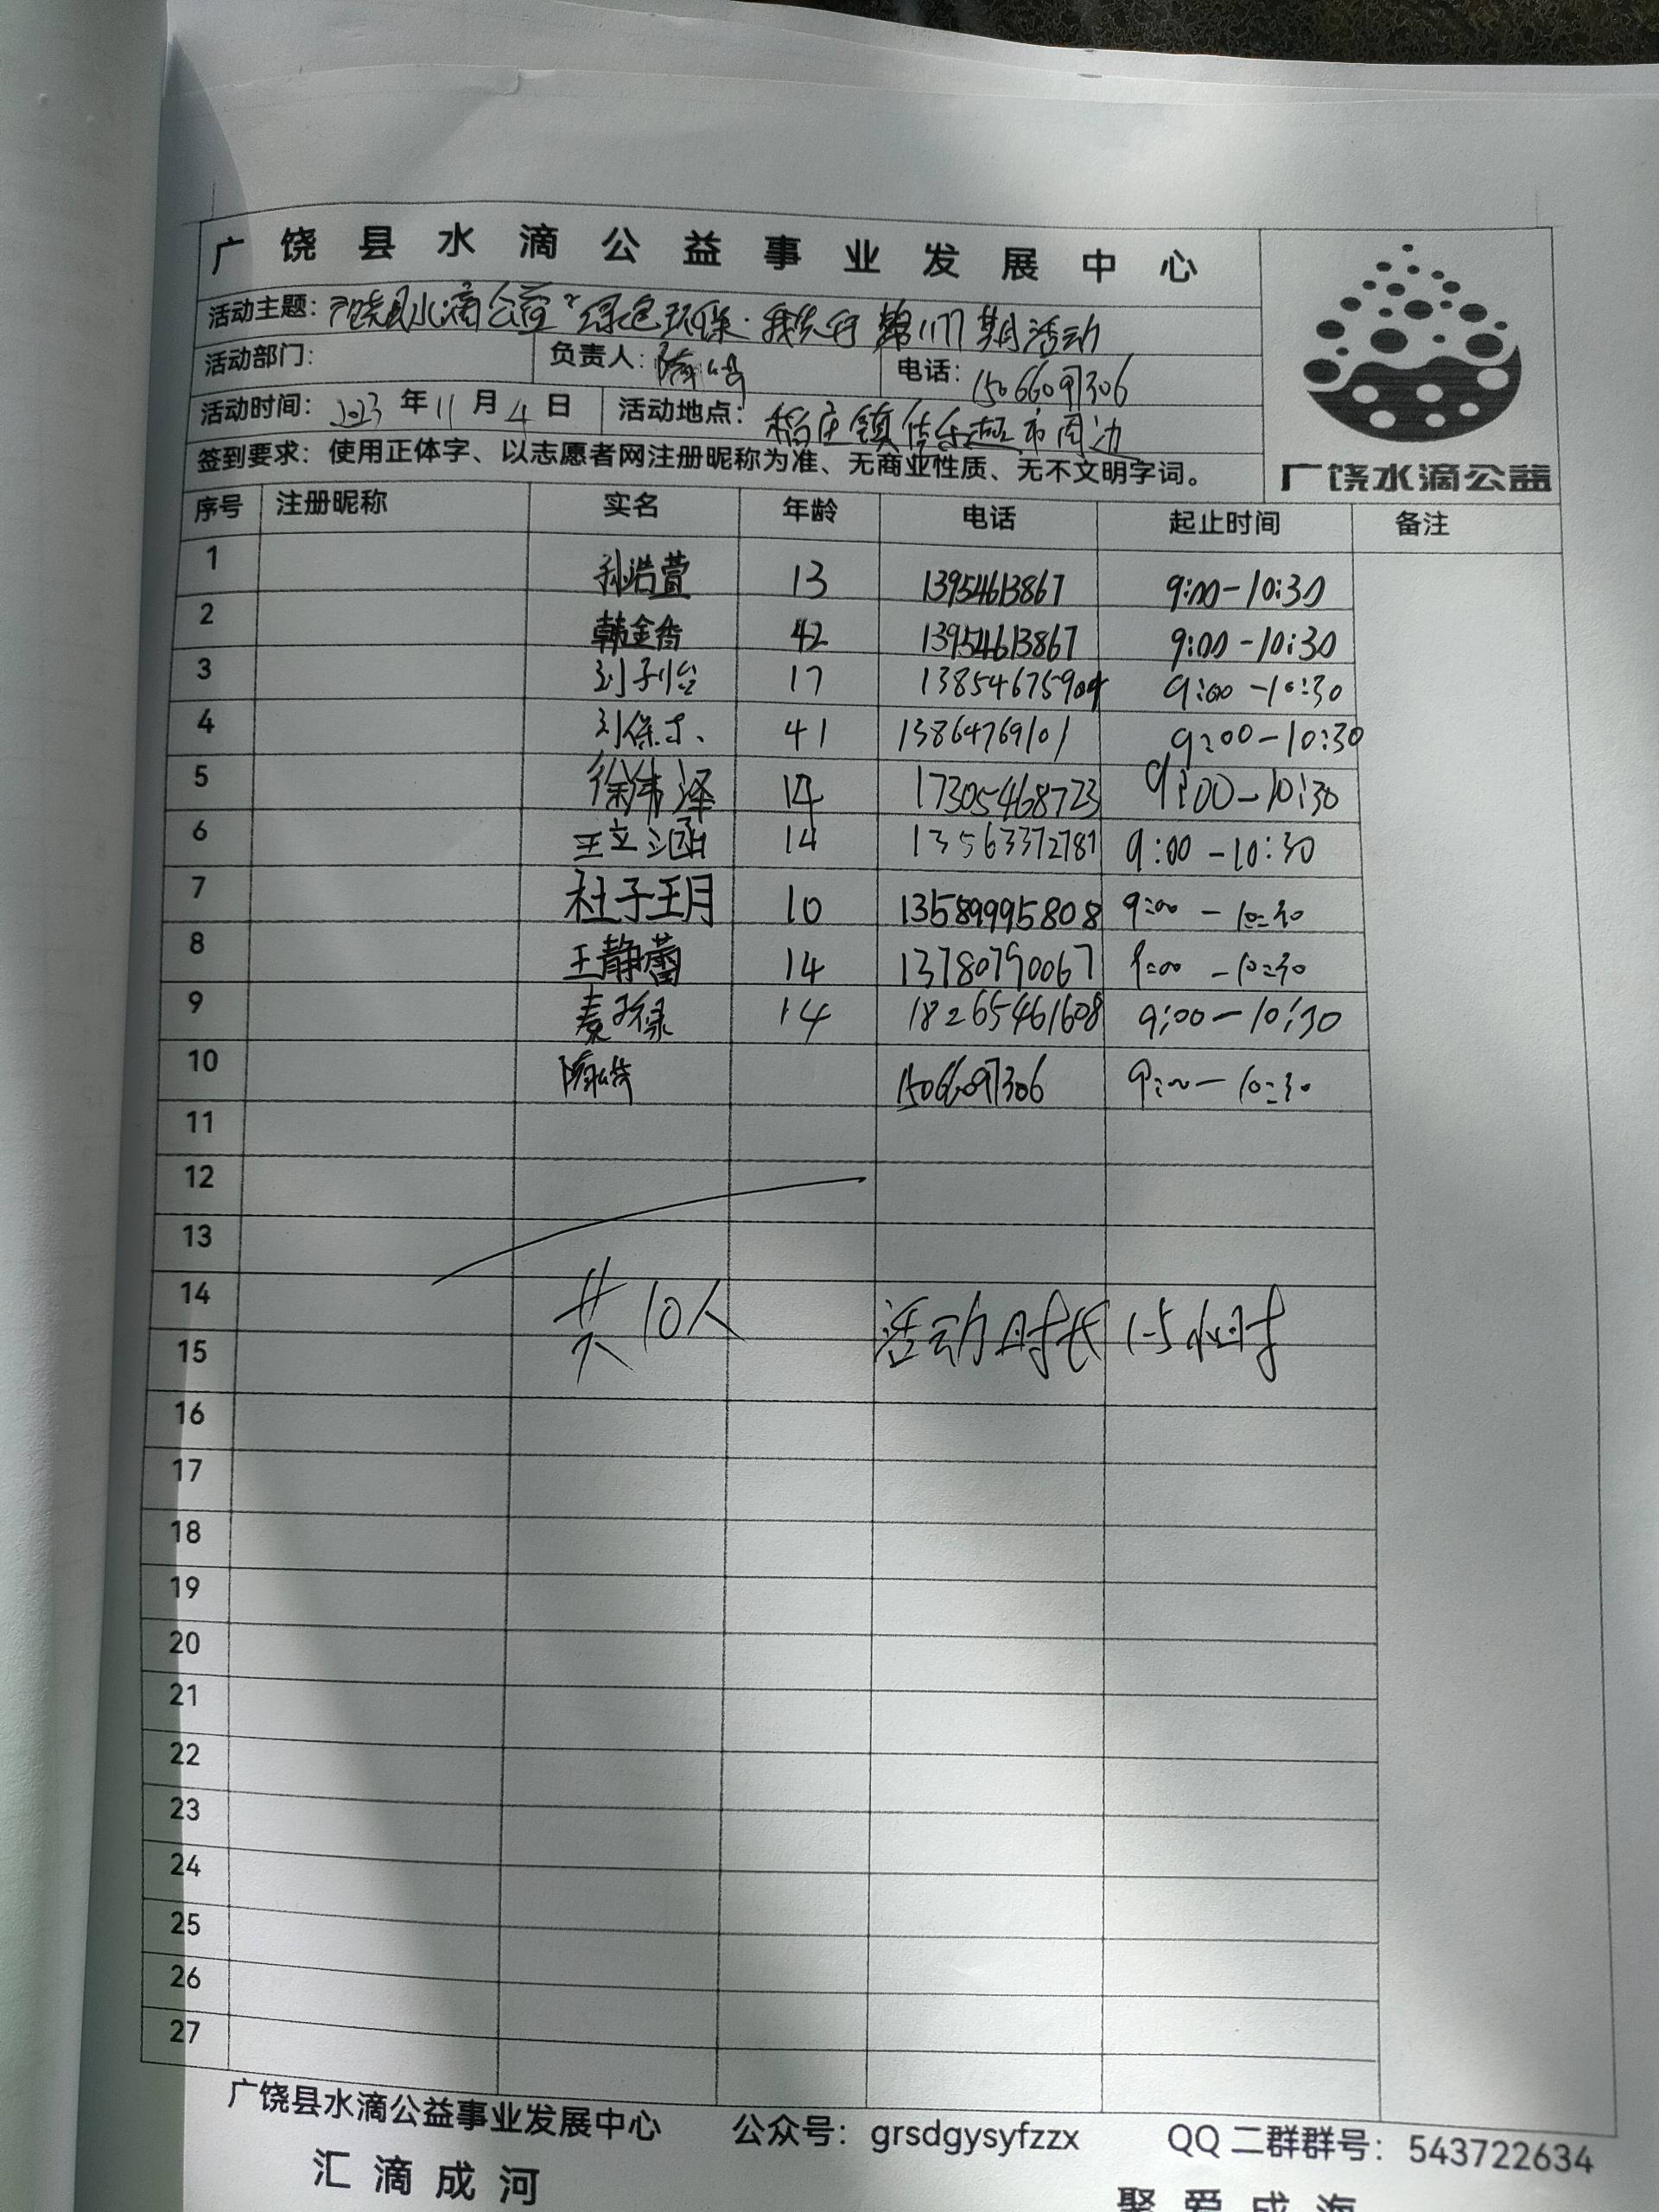 广饶县水滴公益事业发展中心
活动主题：广饶县水滴公益"绿色环保·我先行 第177期活动
活动部门： 负责人： 电话：15066097306
活动时间：2023年11月4日 活动地点：稻庄镇佳乐超市周边
签到要求：使用正体字、以志愿者网注册昵称为准、无商业性质、无不文明字词。
广饶水滴公益
序号 注册昵称 实名 年龄 电话 起止时间 备注
1 孙浩萱 13 13954613867 9:00-10:30
2 韩金香 42 13954613867 9:00-10:30
3 刘子怡 17 13854675909 9:00-10:30
4 刘保才 41 13864769101 9:00-10:30
5 徐伟泽 14 17305468723 9:00-10:30
6 王立涵 14 13563372781 9:00-10:30
7 杜子玥 10 13589995808 9:00-10:30
8 王静蕾 14 13780790067 9:00-10:30
9 14 18265461608 9:00-10:30
10 15066097306 9:00-10:30
11
12
13
14 共10人 活动时长1.5小时
15
16
17
18
19
20
21
22
23
24
25
26
27
广饶县水滴公益事业发展中心 公众号：grsdgysyfzzx QQ二群群号：543722634
汇滴成河 聚爱成海